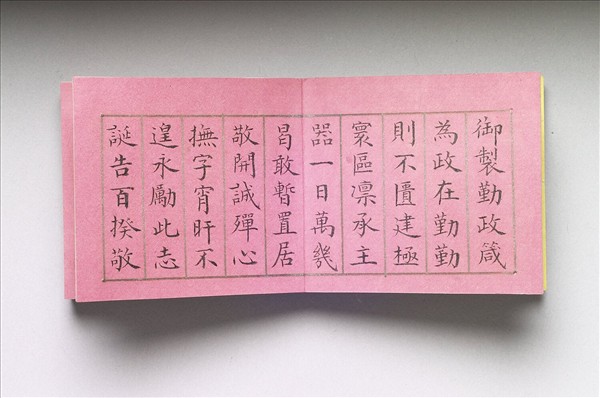 御製勤政箴
為政在勤勤
則不匱建極
寰區凛承主
器一日萬幾
曷敢暫置居
敬開誠殫心
撫字宵旰不
遑永勵此志
誕告百揆敬